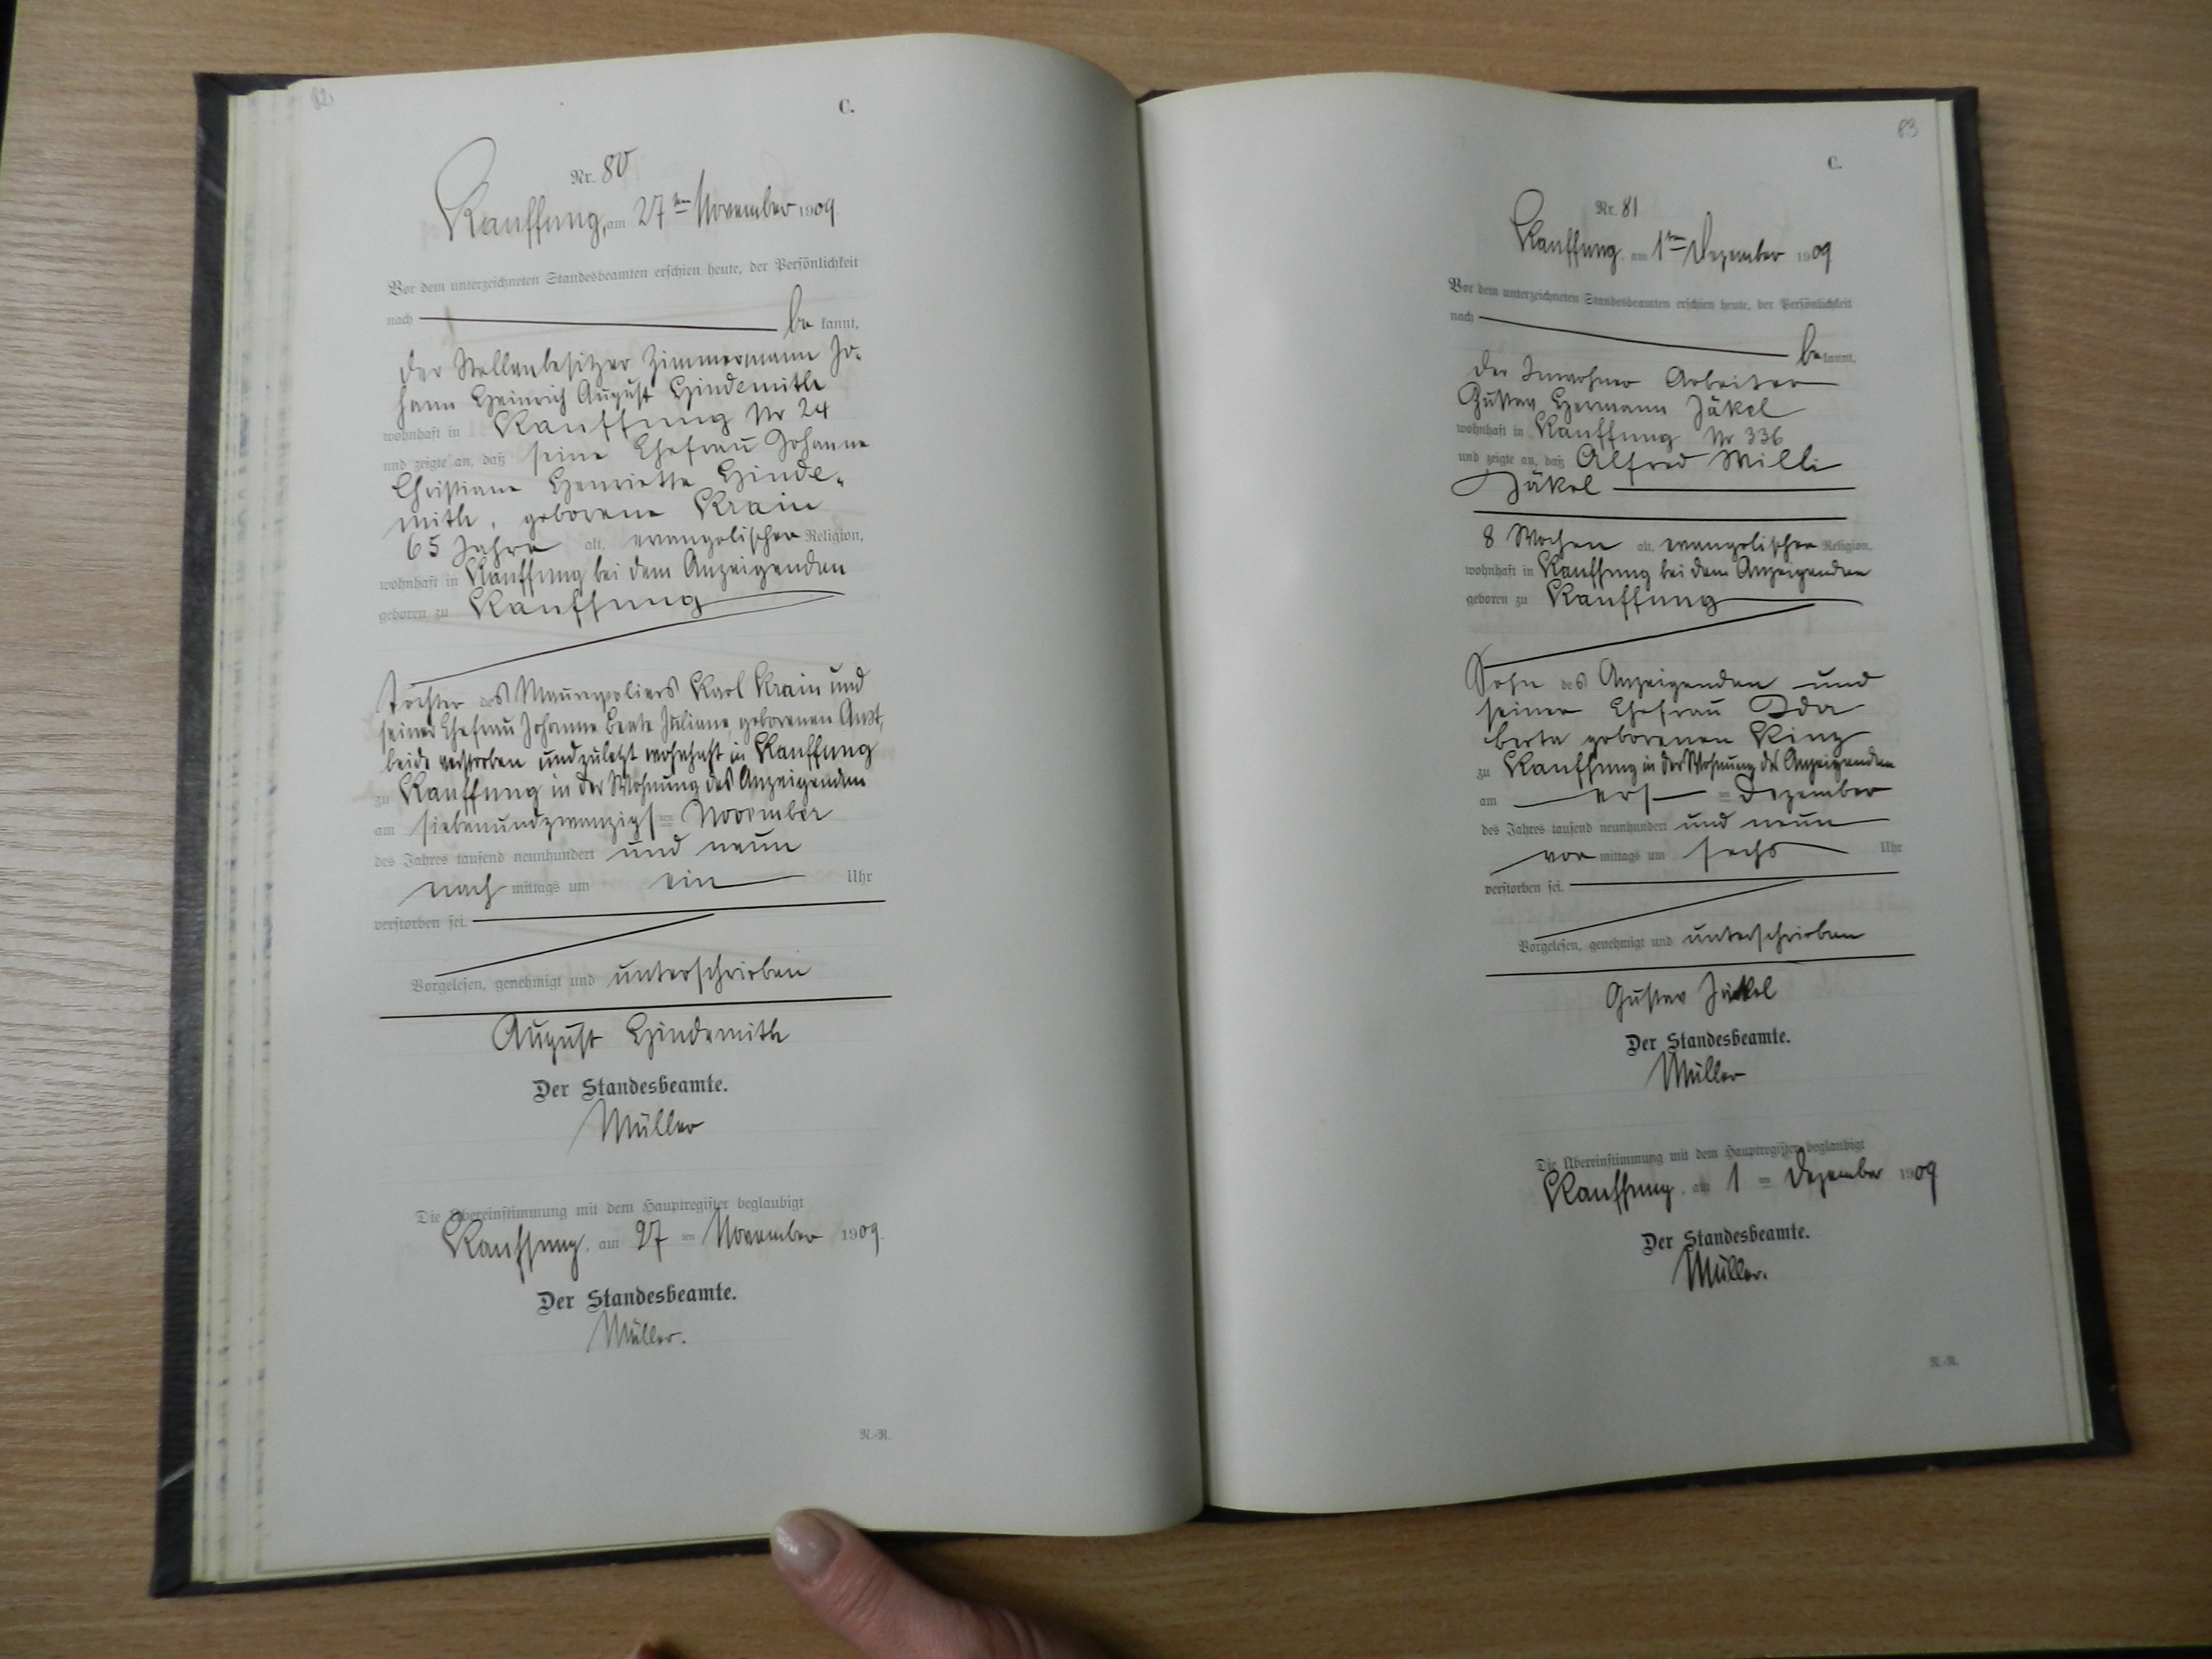 82
C.
Nr. 80
Kauffung, am 27ten November 1909.
Vor dem unterzeichneten Standesbeamten erschien heute, der Persönlichkeit
nach be kannt,
der Stellenbesitzer Zimmermann Jo-
hann Heinrich August Hindemith
wohnhaft in Kauffung Nr 24
und zeigte an, daß seine Ehefrau Johanne
Christiane Henriette Hinde-
mith, geborene Krain
65 Jahre alt, evangelischer Religion,
wohnhaft in Kauffung bei dem Anzeigenden
geboren zu Kauffung
Tochter des Maurerpoliers Karl Krain und
seiner Ehefrau Johanne Beate Juliane, geborenen
beide verstorben und zuletzt wohnhaft in Kauffung
zu Kauffung in der Wohnung des Anzeigenden
am siebenundzwanzigsten November
des Jahres tausend neunhundert und neun
nach mittags um ein Uhr
verstorben sei.
Vorgelesen, genehmigt und unterschrieben
August Hindemith
Der Standesbeamte.
Müller
Die Übereinstimmung mit dem Hauptregister beglaubigt
Kauffung, am 27 ten November 1909.
Der Standesbeamte.
Müller.
N.-R.
83
C.
Nr. 81
Kauffung, am 1ten Dezember 1909
Vor dem unterzeichneten Standesbeamten erschien heute, der Persönlichkeit
nach be kannt,
der Inwohner Arbeiter
Gustav Hermann Jäkel
wohnhaft in Kauffung Nr 336
und zeigte an, daß Alfred Willi
Jäkel
8 Wochen alt, evangelischer Religion,
wohnhaft in Kauffung bei dem Anzeigenden
geboren zu Kauffung
Sohn des Anzeigenden und
seiner Ehefrau Ida
berta geborenen
zu Kauffung in der Wohnung des Anzeigenden
am ersten Dezember
des Jahres tausend neunhundert und neun
vor mittags um sechs Uhr
verstorben sei.
Vorgelesen, genehmigt und unterschrieben
Gustav Jäkel
Der Standesbeamte.
Müller
Die Übereinstimmung mit dem Hauptregister beglaubigt
Kauffung, am 1 ten Dezember 1909
Der Standesbeamte.
Müller.
N.-R.